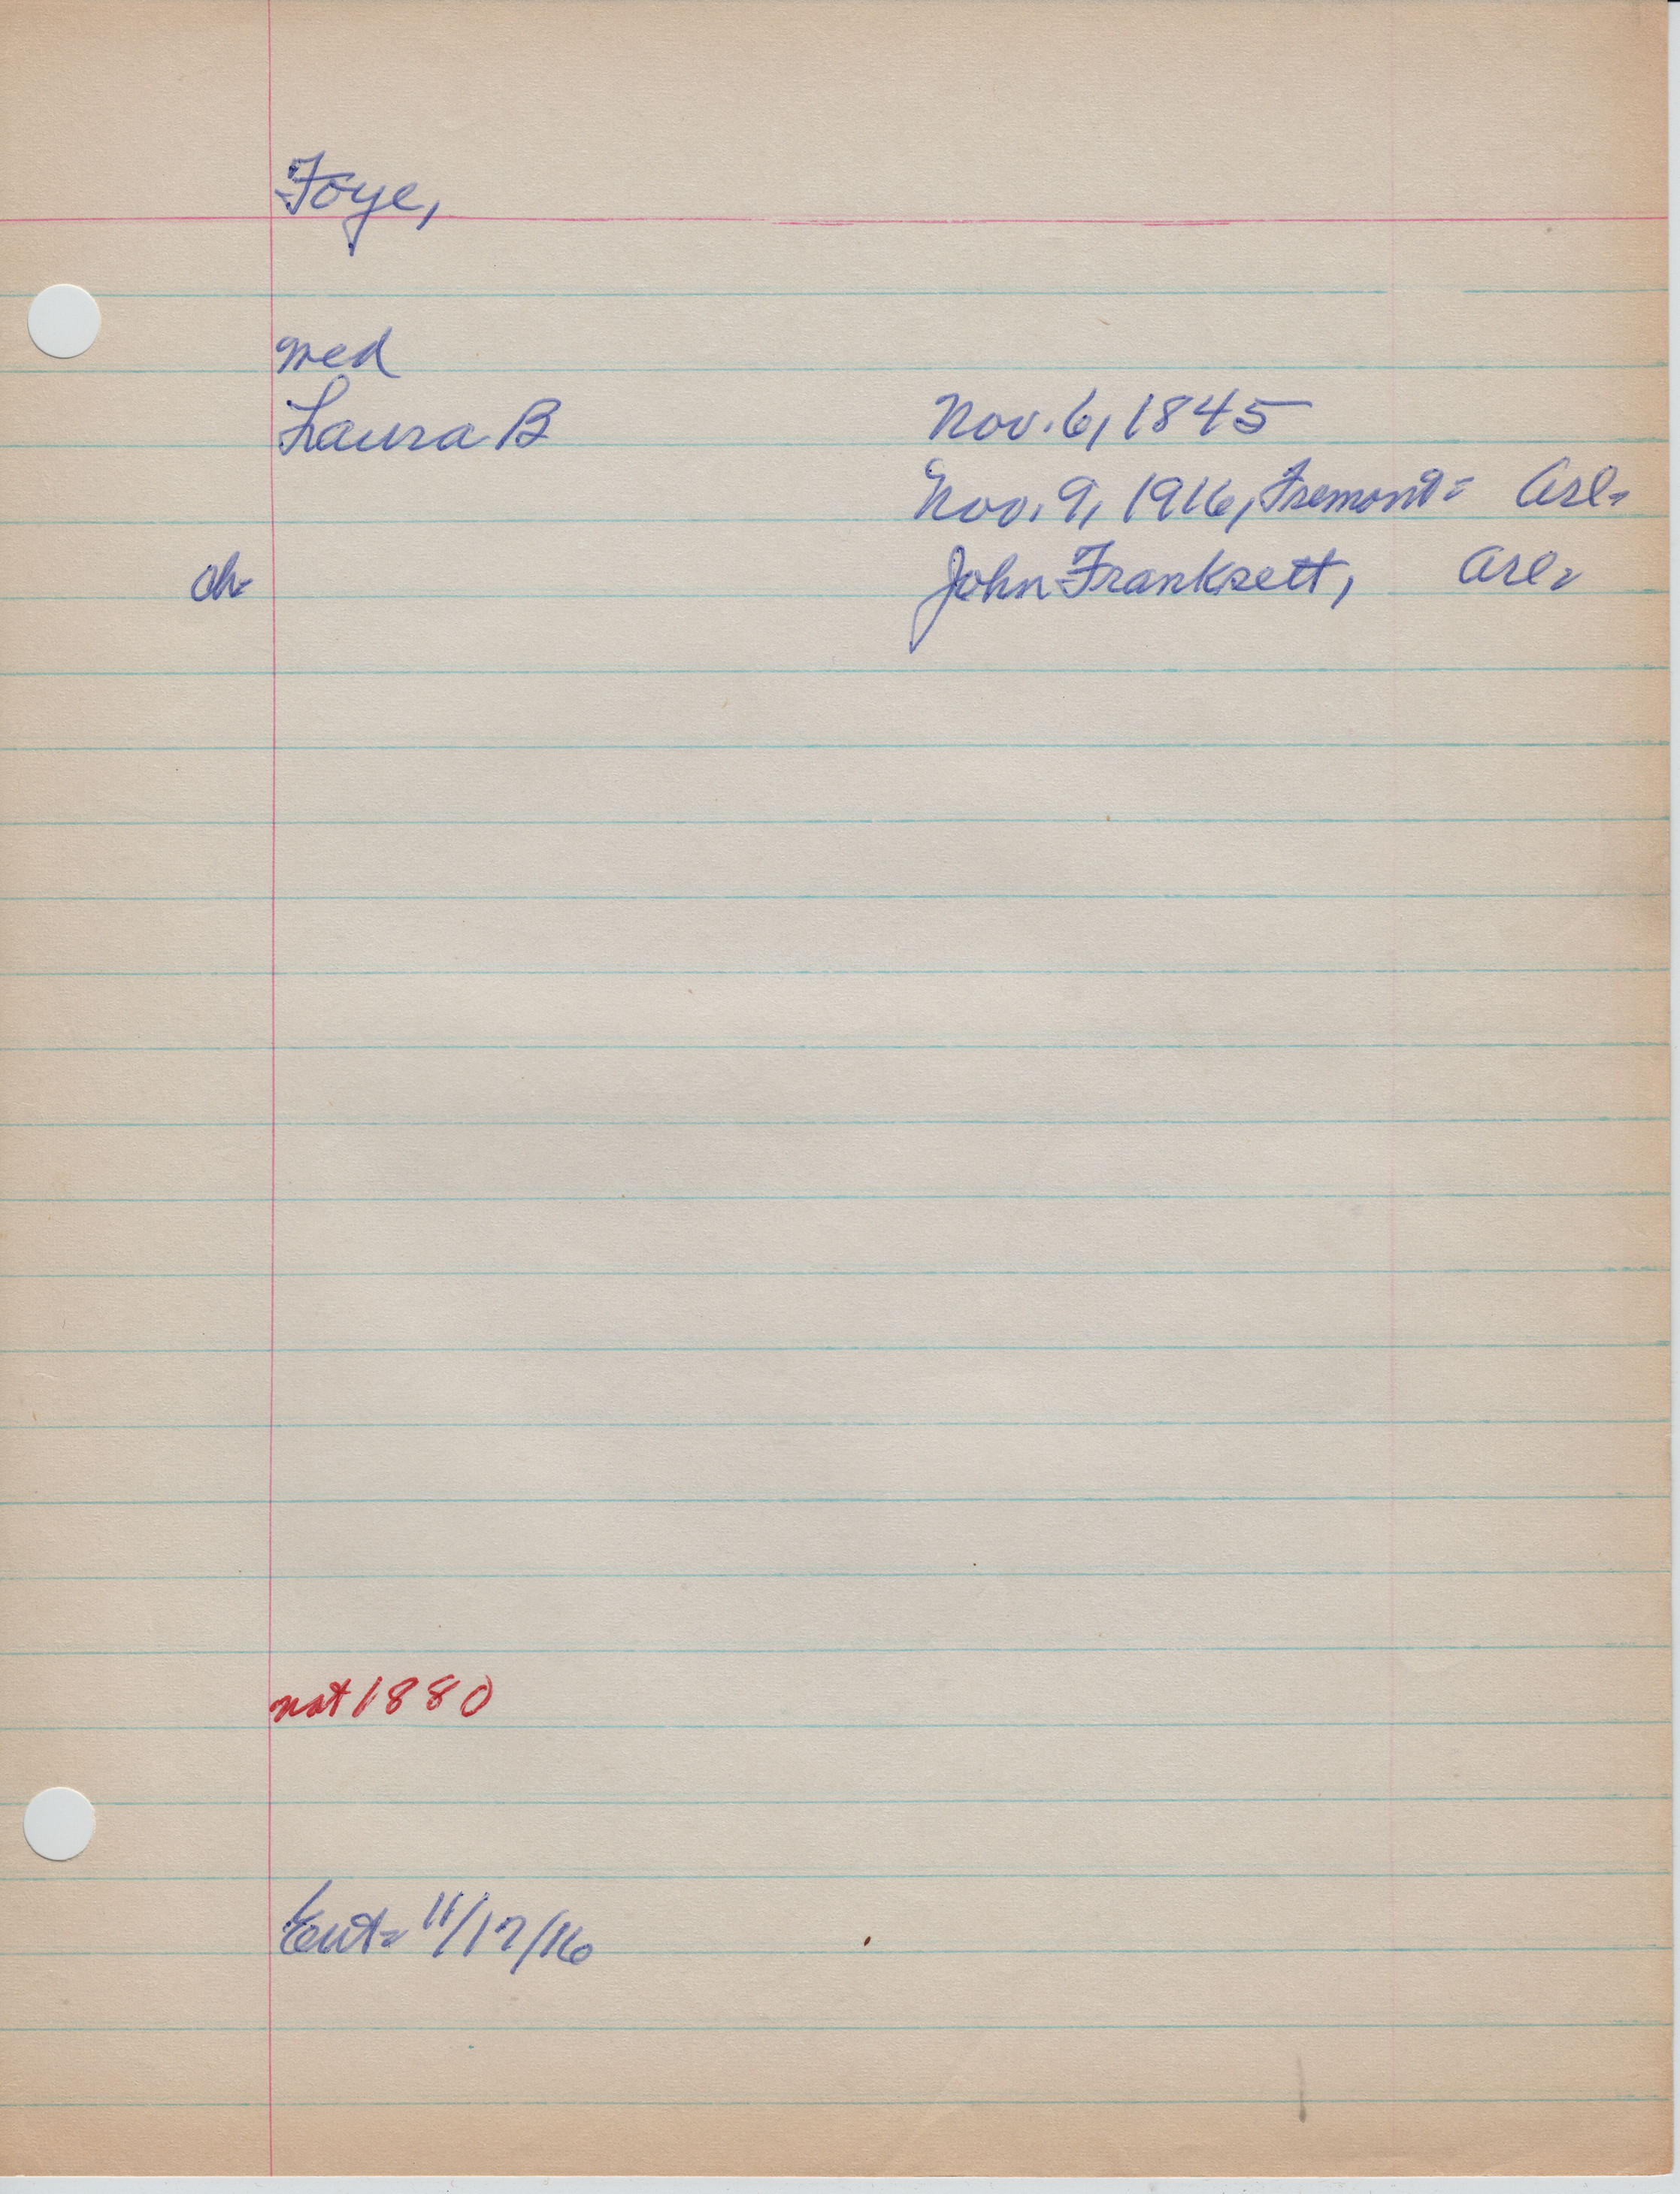 Foye,
med
Laura B Nov. 6, 1845
Nov. 9, 1916, Fremont= Arl=
ch= John Franksett, Arl=
not 1880
Ent= 11/17/16